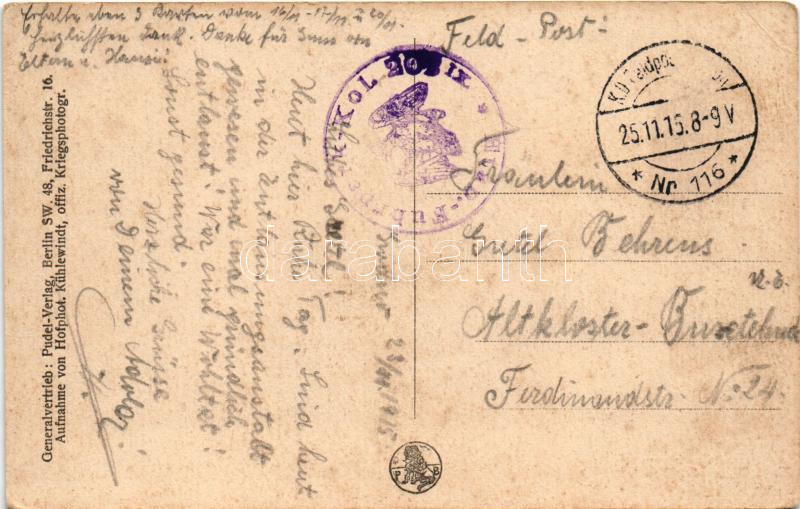 Erhalte eben 3 Karten vom 16/11 - 17/11 u 20/11.
Herzlichsten Dank. Danke für
Eltern u.
Feld-Post:
K.D. Feldpost
25.11.15. 8-9 V
* Nr. 116 *
Kol. 20 IX.
Fräulein
Gretel Behrens
Altkloster-Buxtehude
Ferdinandstr. No 24.
23/11.1915
Liebes Gretel!
Heut hier Ruhe Tag. Sind heut
in der Entlausungsanstalt
gewesen und mal gründlich
entlaust! War eine Wolltat!
Sonst gesund.
Herzliche Grüsse
von Deinem
Generalvertrieb: Pudel-Verlag, Berlin SW. 48, Friedrichstr. 16.
Aufnahme von Hofphot. Kühlewindt, offiz. Kriegsphotogr.
P B
darabanth